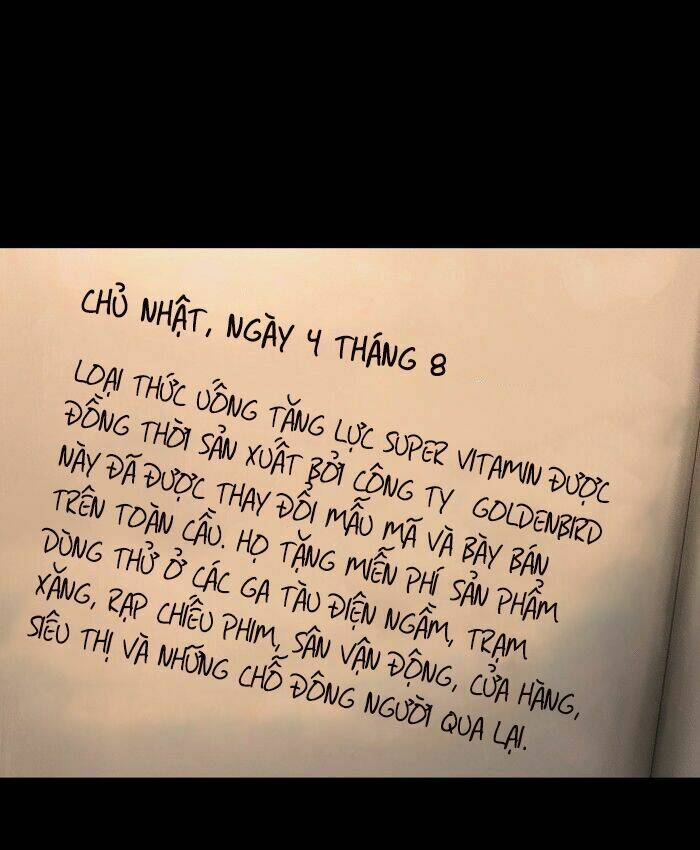 CHỦ NHẬT, NGÀY 4 THÁNG 8
LOẠI THỨC UỐNG TĂNG LỰC SUPER VITAMIN ĐƯỢC
ĐỒNG THỜI SẢN XUẤT BỞI CÔNG TY GOLDENBIRD
NÀY ĐÃ ĐƯỢC THAY ĐỔI MẪU MÃ VÀ BÀY BÁN
TRÊN TOÀN CẦU. HỌ TẶNG MIỄN PHÍ SẢN PHẨM
DÙNG THỬ Ở CÁC GA TÀU ĐIỆN NGẦM, TRẠM
XĂNG, RẠP CHIẾU PHIM, SÂN VẬN ĐỘNG, CỬA HÀNG,
SIÊU THỊ VÀ NHỮNG CHỖ ĐÔNG NGƯỜI QUA LẠI.